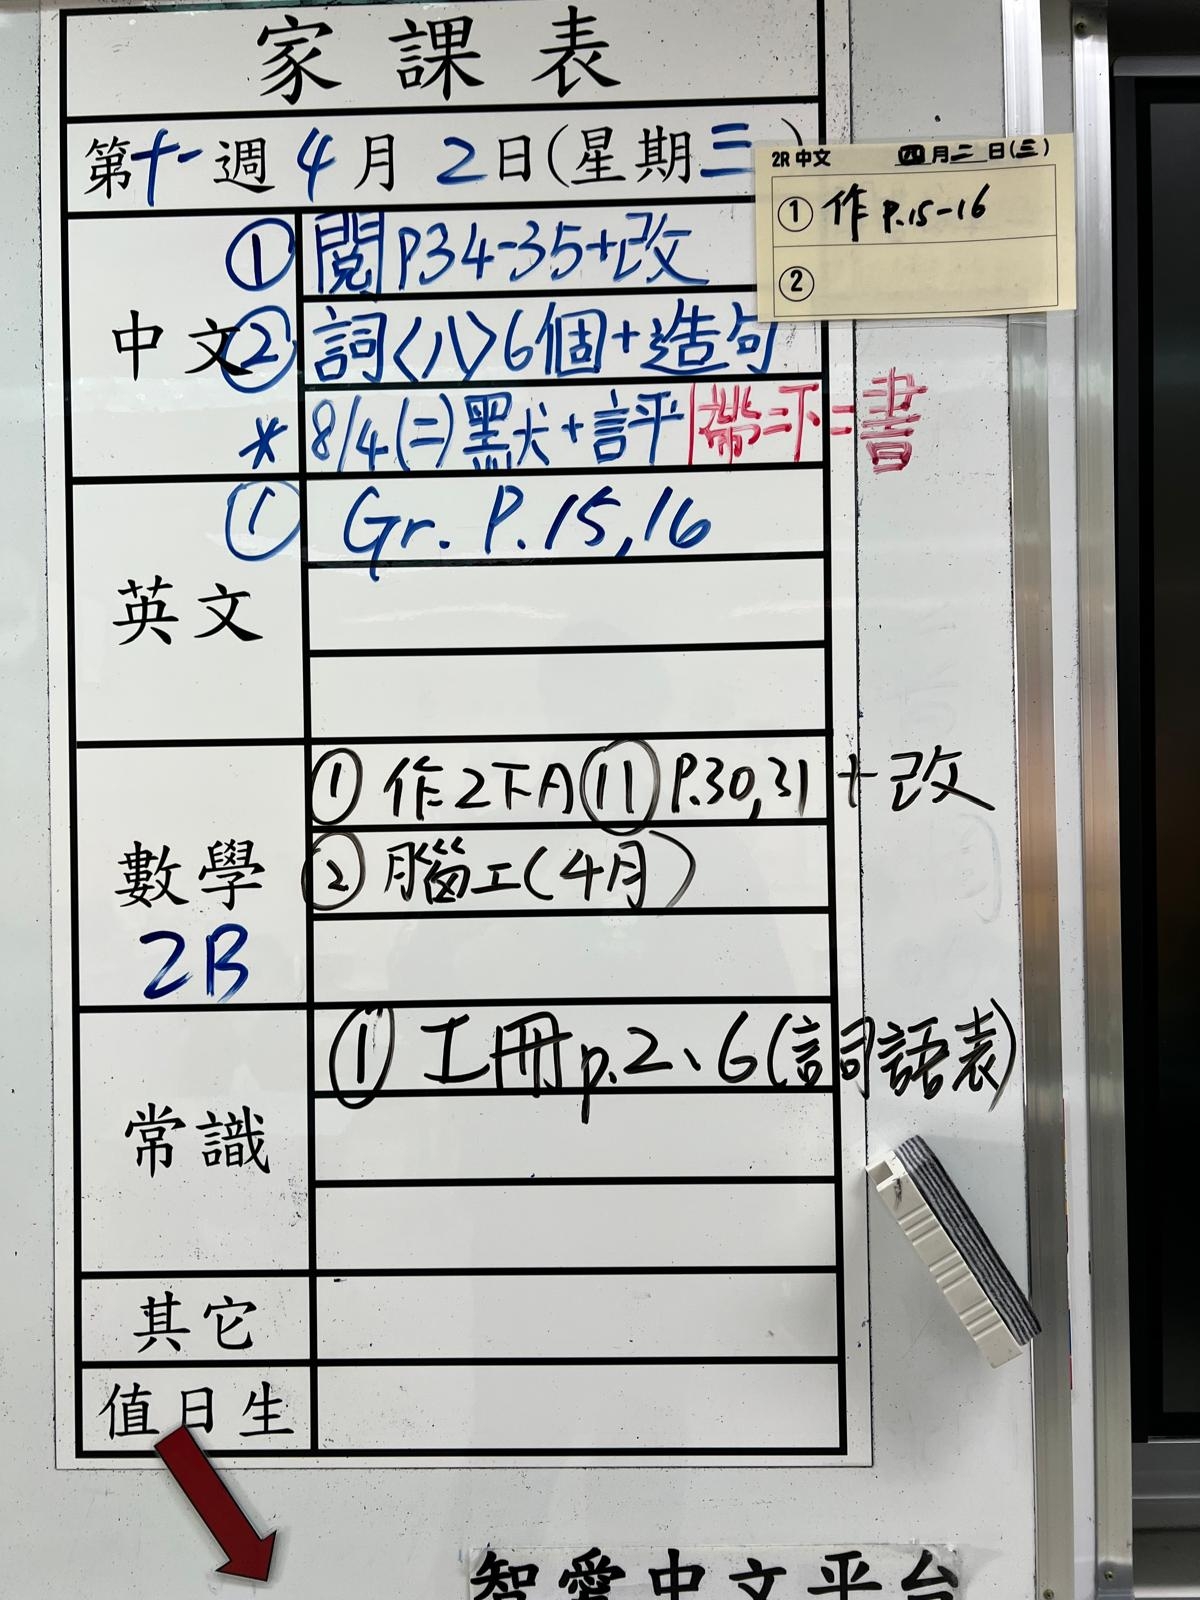 家課表
第十一週 4月 2日(星期三)
2R 中文 四月二日(三)
① 作 P.15-16
②
中文
① 閱P34-35+改
② 詞〈八〉6個+造句
* 8/4(二)默+評 帶二下二書
英文
① Gr. P.15,16
數學
2B
① 作2下A⑪P.30,31+改
② 腦工(4月)
常識
① 工冊p.2、6(詞語表)
其它
值日生
智愛中文平台